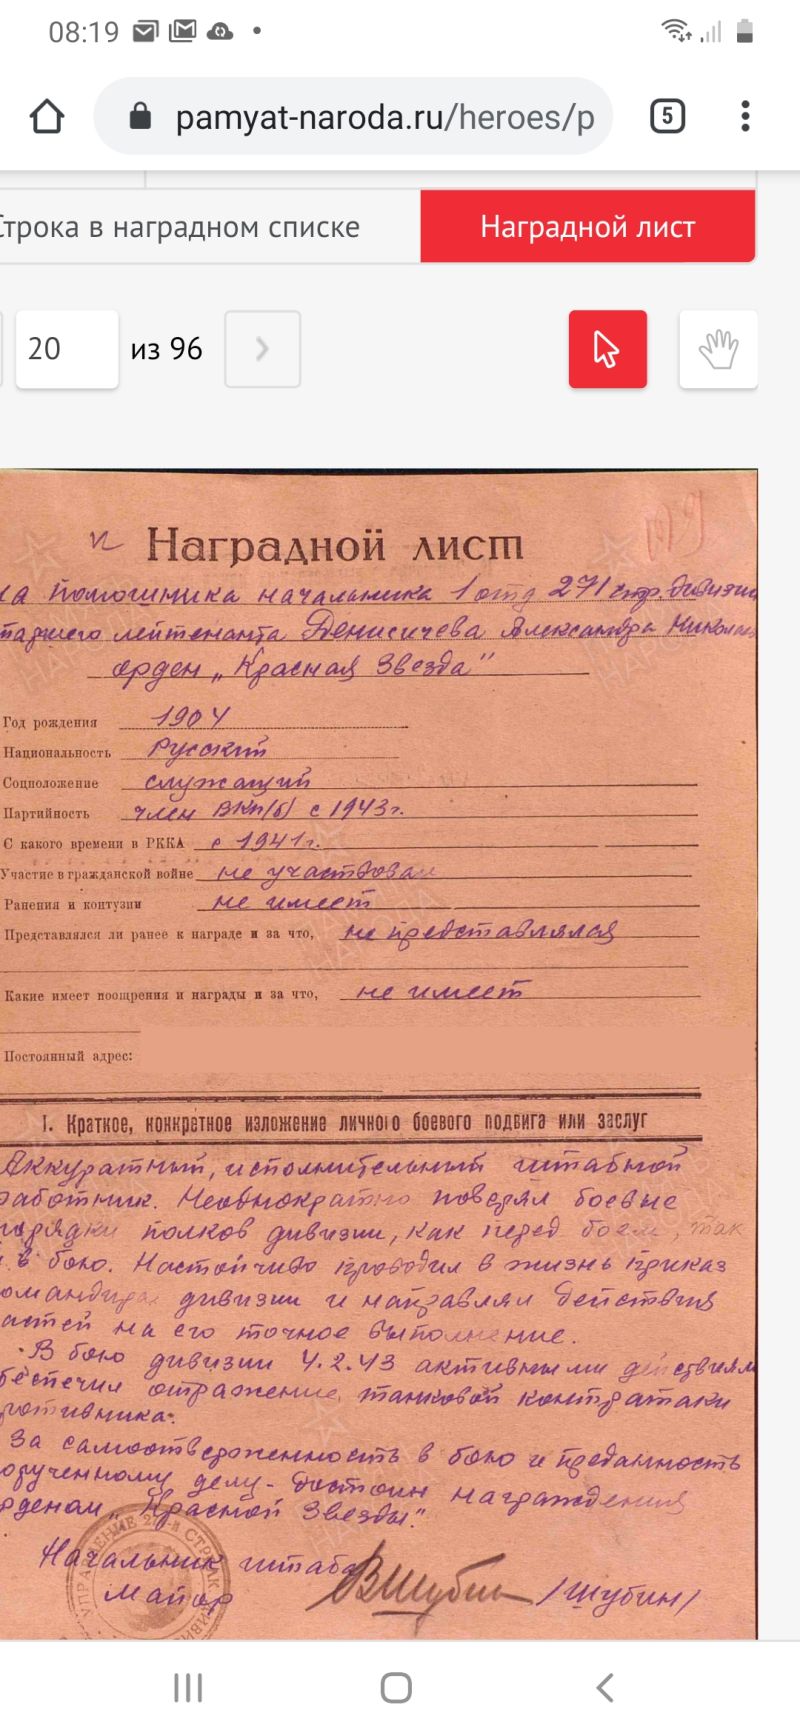 08:19
pamyat-naroda.ru/heroes/p
5
Строка в наградном списке
Наградной лист
20 из 96
Наградной лист
на помошника начальника 1 отд 271 стр. дивизии
таршего лейтенанта Денисичева Александра Никола
орден „Красная Звезда"
Год рождения 1904
Национальность Русский
Соцположение служащий
Партийность член ВКП/б/ с 1943г.
С какого времени в РККА с 1941г.
Участие в гражданской войне не участвовал
Ранения и контузии не имеет
Представлялся ли ранее к награде и за что, не представлялся
Какие имеет поощрения и награды и за что, не имеет
Постоянный адрес:
I. Краткое, конкретное изложение личного боевого подвига или заслуг
Аккуратный, исполнительный штабной
работник. Неоднократно поверял боевые
порядки полков дивизии, как перед боем, так
и в бою. Настойчиво проводил в жизнь приказ
омандира дивизии и направлял действия
астей на его точное выполнение.
В бою дивизии 4.2.43 активными действиям
беспечил отражение танковой контратаки
ротивника.
За самоотверженность в бою и преданность
орученному делу - достоин награждения
рденом „Красной Звезды".
Начальник штаба
Майор
ВШубин /Шубин/
УПРАВЛЕНИЕ 27 -й СТРЕЛК ДИВИЗ